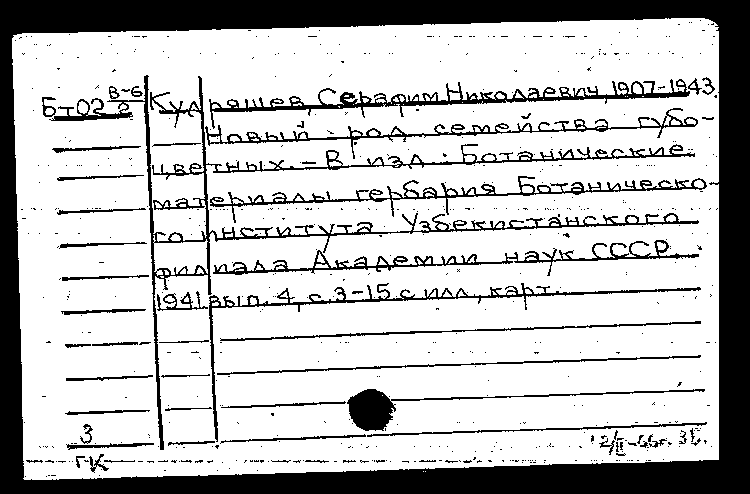 Бт02 В-6/2 Кудряшев, Серафим Николаевич, 1907-1943.
Новый род семейства губо-
цветных. – В изд.: Ботанические
материалы гербария Ботаническо-
го института Узбекистанского
филиала Академии наук СССР.
1941 вып. 4, с. 3-15 с илл., карт.
3
ГК
12/II-66г.